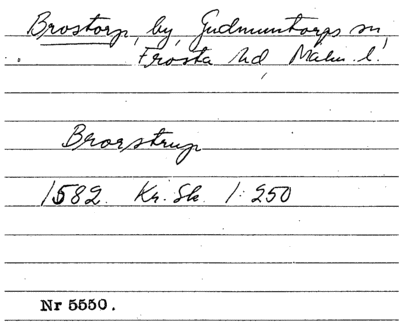 Brostorp, by, Gudmuntorps sn,
Frosta hd, Malm. l.
Broerstrup
1582. Kr. Sk. 1: 250
Nr 5550.